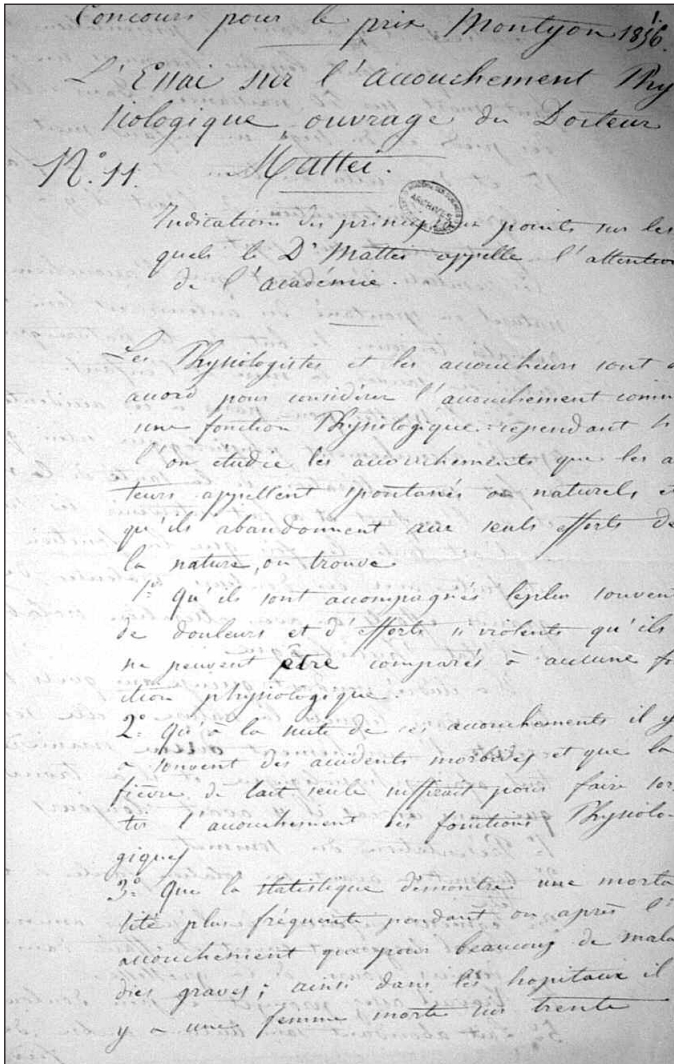 Concours pour le prix Montyon 1856.
1.
L'Essai sur l'accouchement Phy
siologique ouvrage du Docteur
N.° 11. Mattei.
ARCHIVES
Indication des principaux points sur les
quels le Dr Mattei appelle l'attention
de l'académie.
Les Physiologistes et les accoucheurs sont d
accord pour considérer l'accouchement comm
une fonction Physiologique. cependant si
l'on etudie les accouchements que les a
teurs appellent spontanés ou naturels e
qu'ils abandonnent aux seuls efforts de
la nature, on trouve
1° Qu'ils sont accompagnés leplus souvent
de douleurs et d'efforts si violents qu'ils
ne peuvent etre comparés à aucune fo
ction physiologique.
2° Qu'à la suite de ces accouchements il y
a souvent des accidents morbides et que la
fievre de lait seule suffirait pour faire sor
tir l'accouchement des fonctions Physiolo
giques
3° Que la statistique démontre une morta
lité plus fréquente pendant ou après l'
accouchement que pour beaucoup de mala
dies graves; ainsi dans les hopitaux il
y a une femme morte sur trente